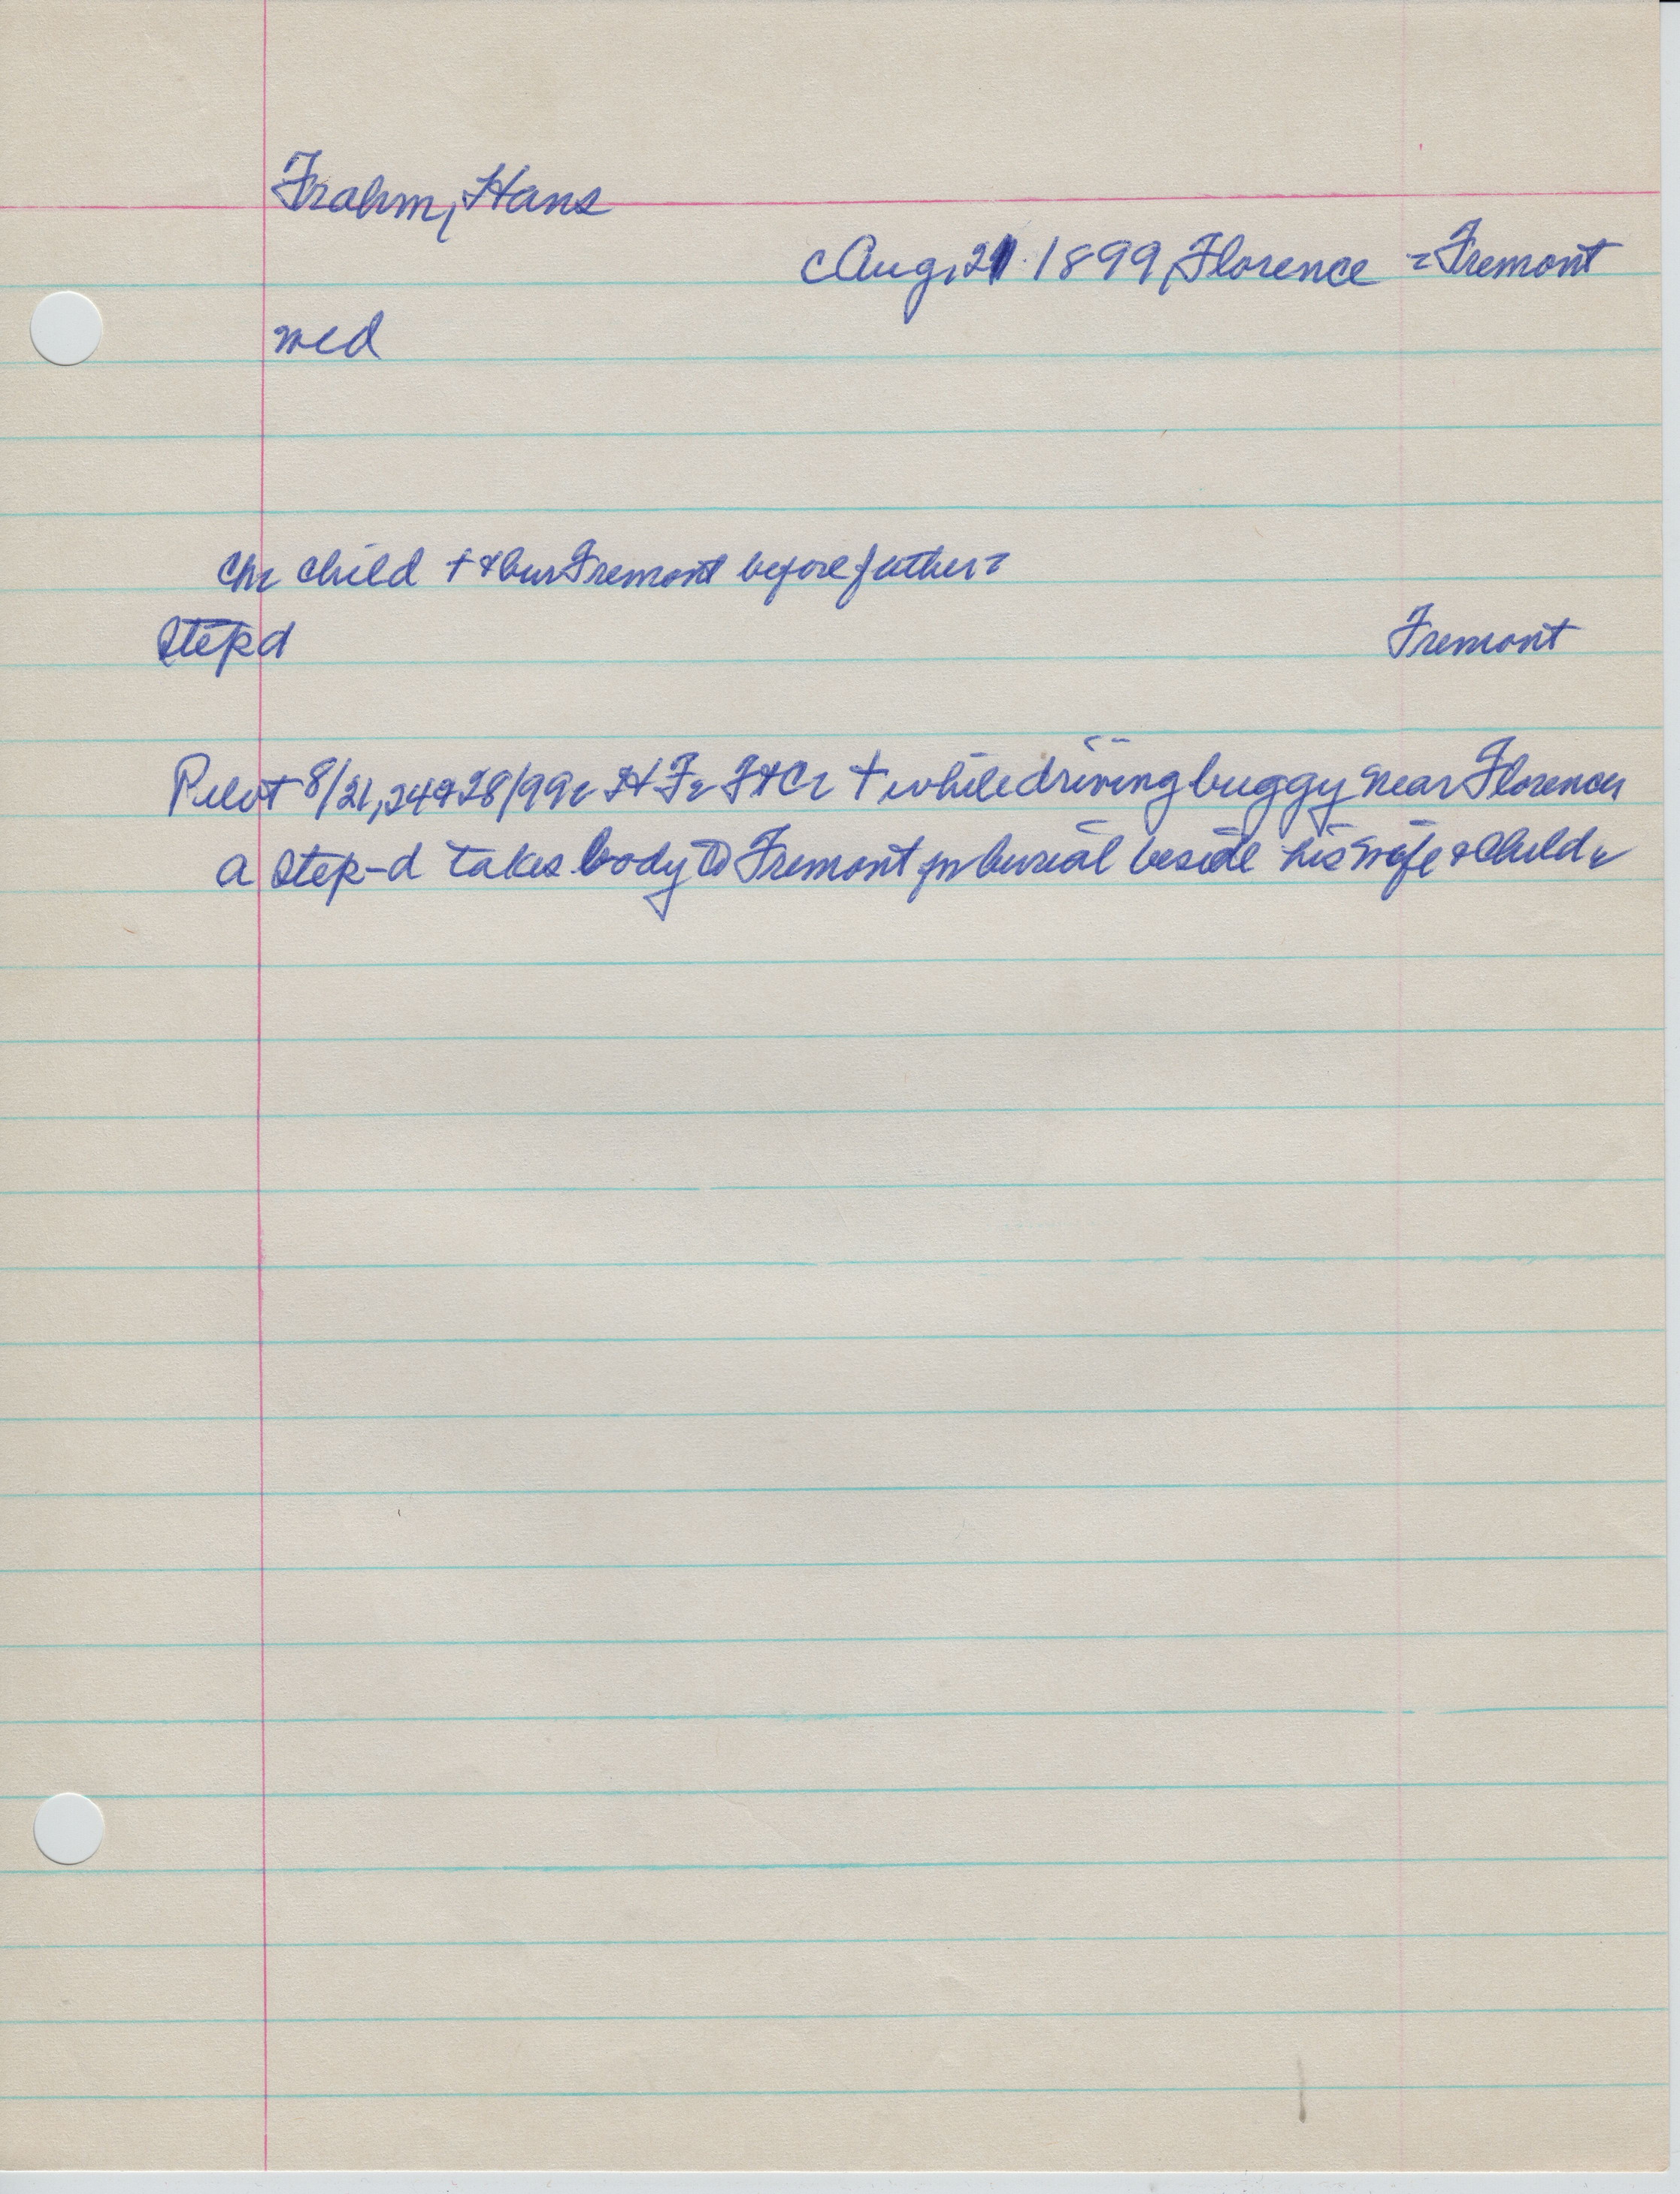 Frahm, Hans
cAug. 21. 1899, Florence = Fremont
md
Ch. child † & bur Fremont before father.
Step d Fremont
Pilot 8/21, 24 & 28/99. H F. F & C. † while driving buggy near Florence,
a step-d takes body to Fremont for burial beside his wife & child.